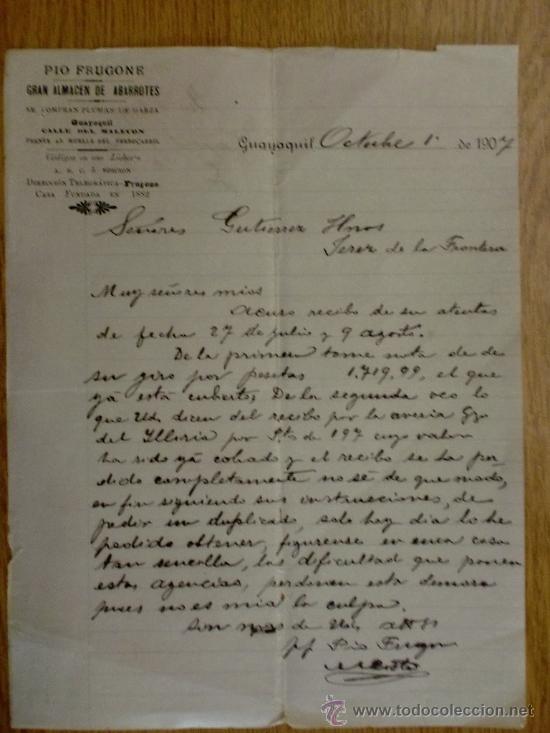 PIO FRUGONE
GRAN ALMACEN DE ABARROTES
SE COMPRAN PLUMAS DE GARZA
Guayaquil
CALLE DEL MALECON
FRENTE AL MUELLE DEL FERROCARRIL
Códigos en uso Lieber's
A. B. C. 5 EDICION
DIRECCIÓN TELEGRÁFICA-Frugone
CASA FUNDADA EN 1882
Guayaquil Octubre 1º de 1907
Señores Gutierrez Hnos
Jerez de la Frontera
Muy señores mios
acuso recibo de su atentas
de fecha 27 de julio y 9 agosto.
De la primera tome nota de de
su giro por pesetas 1.719,99, el que
yá está cubierto; De la segunda veo lo
que Uds dicen del recibo por la averia
del por Pts de 197 cuyo valor
ha sido yá cobrado y el recibo se ha per-
dido completamente no sé de que modo,
en fin siguiendo sus instrucciones, de
pedir un duplicado, solo hoy dia lo he
podido obtener, figurense en una cosa
tan sencilla, las dificultad que ponen
estas agencias, perdonen esta demora
pues no es mia la culpa.
Son de Uds
pp Pio Frugone
todocoleccion.net
www.todocoleccion.net